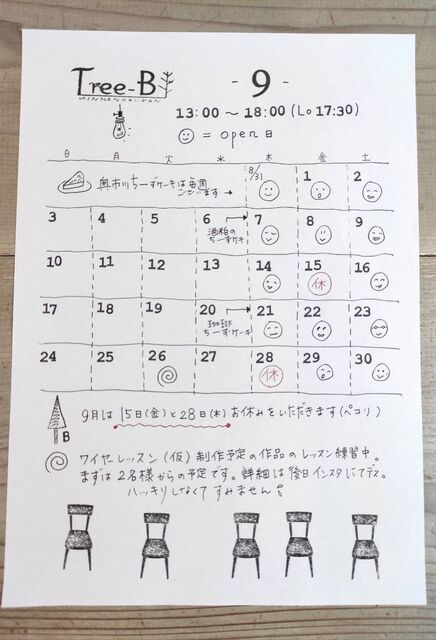 Tree-B
MINNANOKUBAN
- 9 -
13:00 〜 18:00 (Lo 17:30)
= open 日
日 月 火 水 木 金 土
奥市川ちーずケーキは毎週
ございます →
8/31 1 2
3 4 5 6 7 8 9
酒粕の
ちーずケーキ
10 11 12 13 14 15 16
休
17 18 19 20 21 22 23
珈琲
ちーずケーキ
24 25 26 27 28 29 30
休
B
9月は 15日(金)と28日(木) お休みをいただきます(ペコリ)
ワイヤーレッスン (仮) 制作予定の作品のレッスン練習中。
まずは2名様からの予定です。詳細は後日インスタにてデス。
ハッキリしなくてすみません